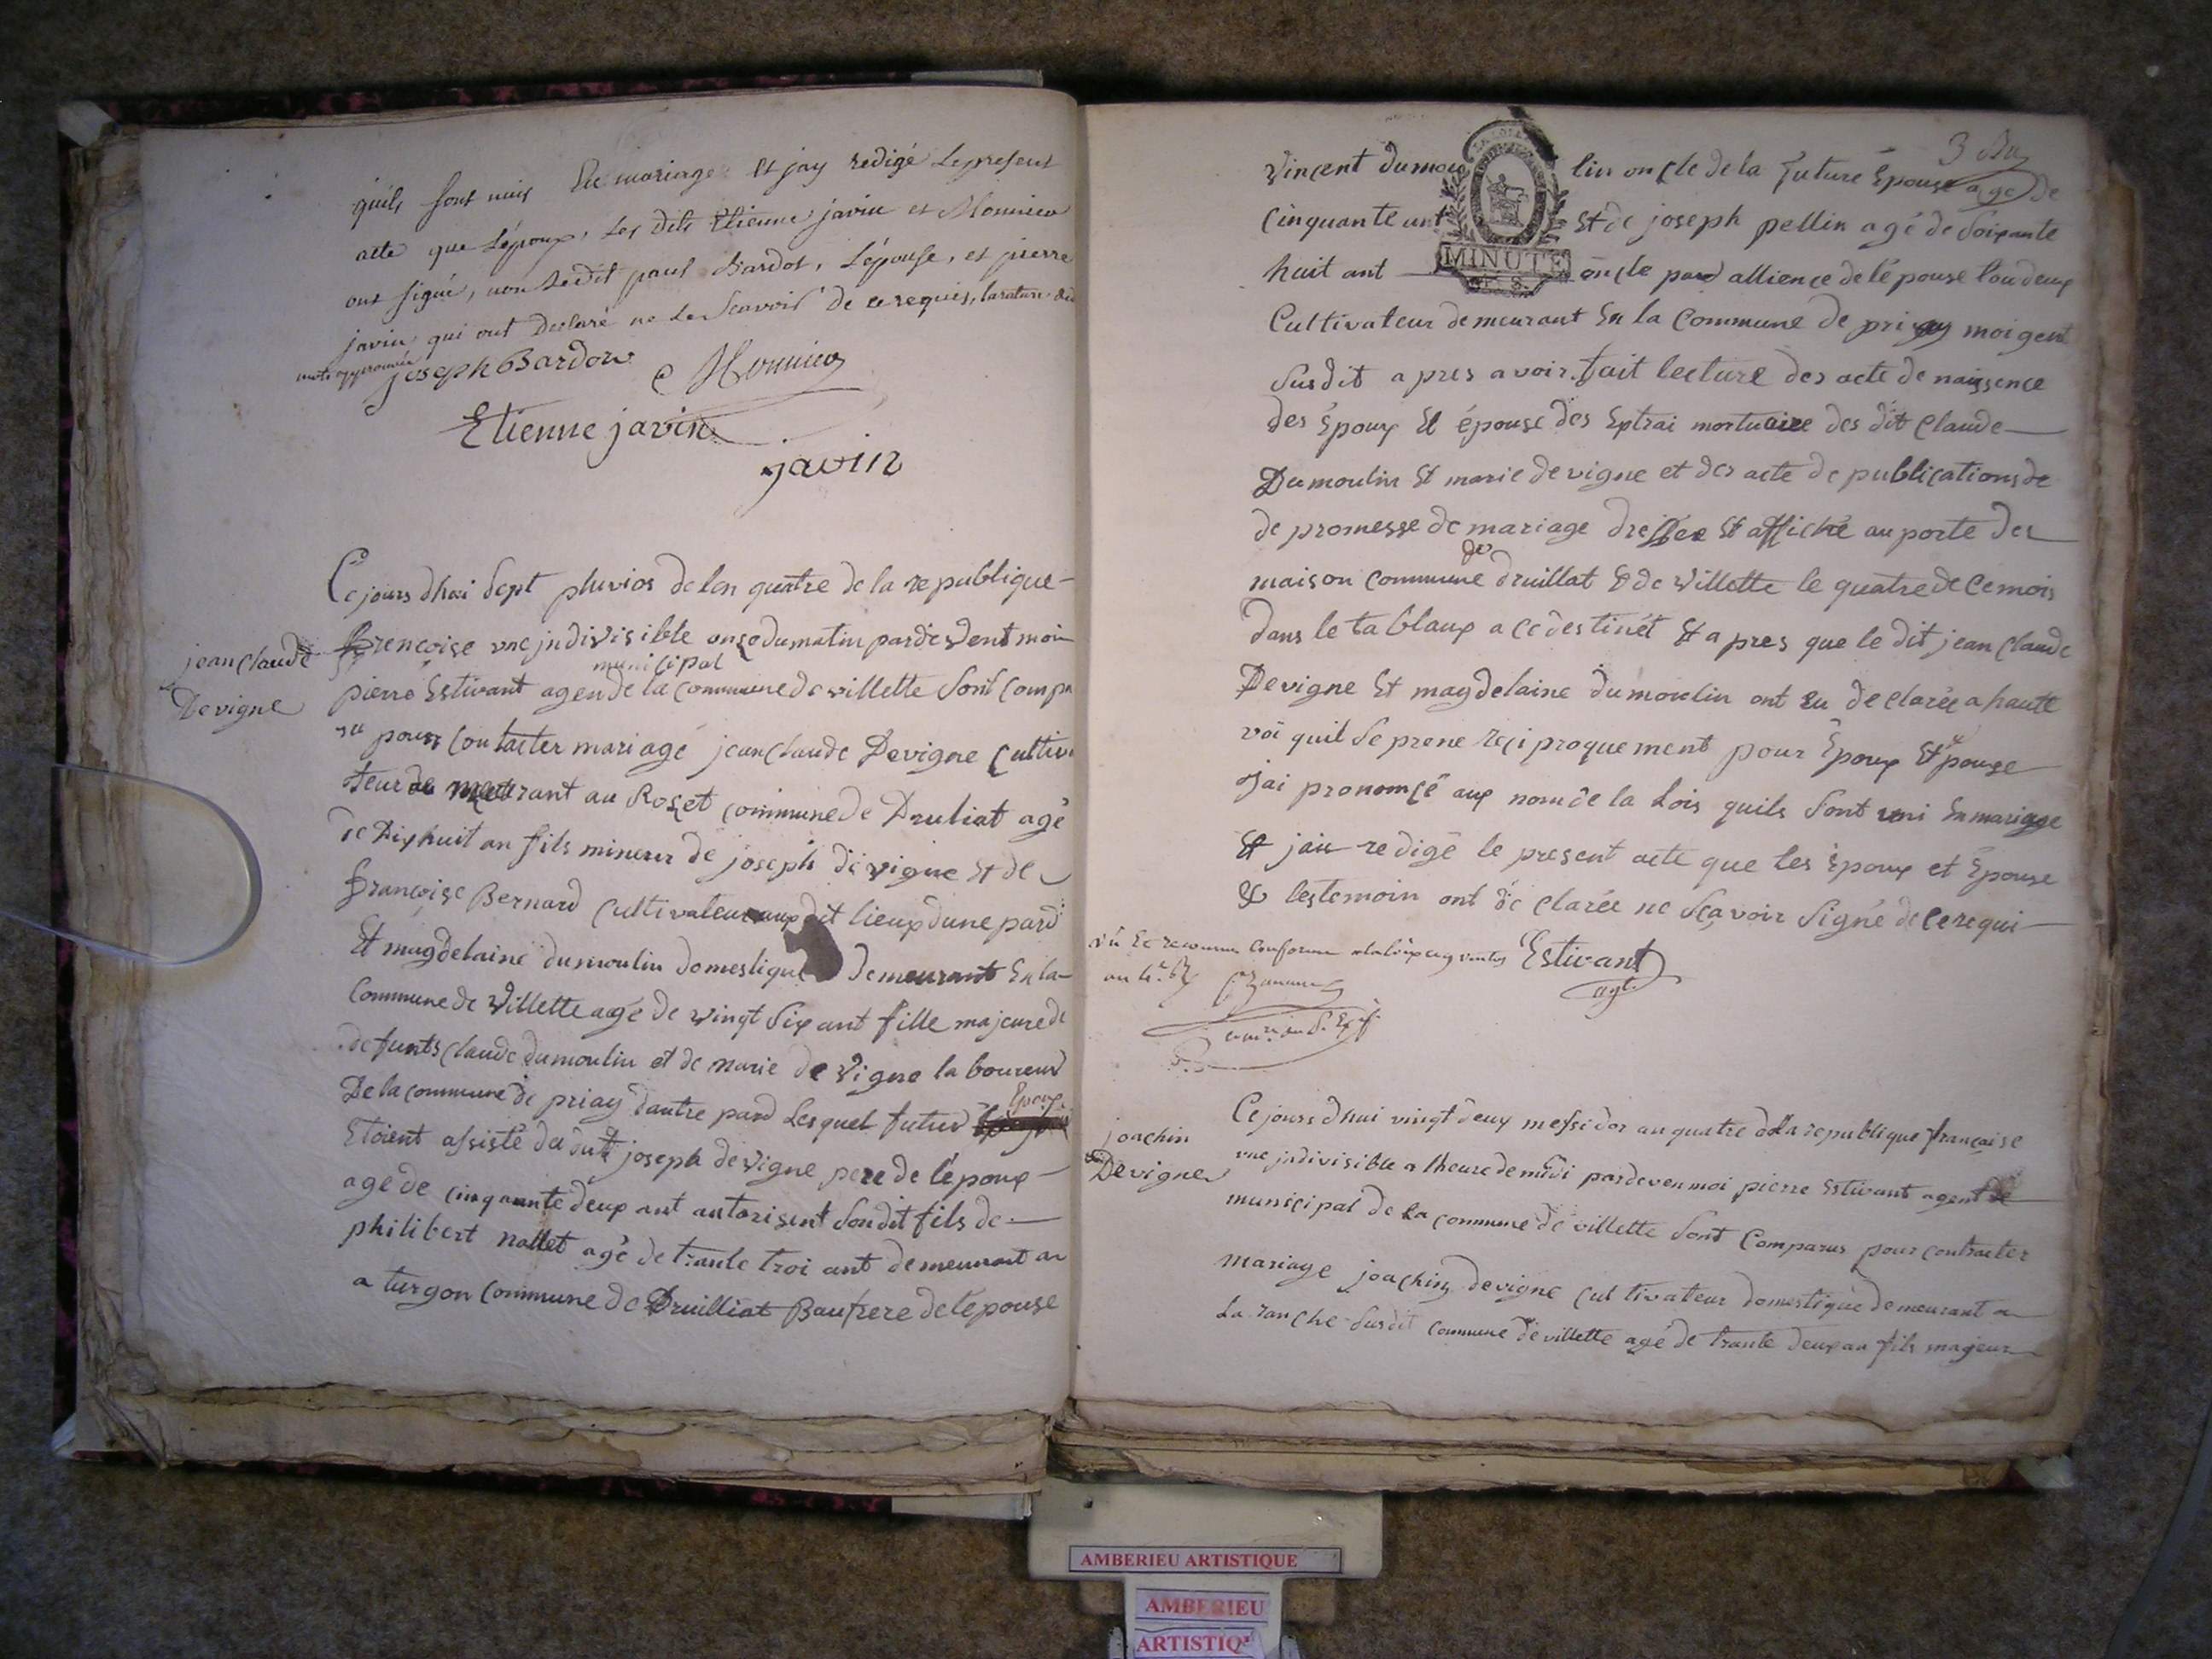 quils sont unis En mariage et jay redigé Lepresent
acte que Lépoux, Les dits Etienne javin et Monnier
ont signé, non Ledit paul Bardot, L'épouse, et pierre
javin qui ont Declaré ne Le Scavoir de ce requis, la rature des
mots approuvée
joseph Bardou Monnier
Etienne javin
javin
Ce jours dhui Sept pluvios de lan quatre de la republique
jean Claude
Devigne
frencoise une jndivisible onse du matin pardevent moi
municipal
pierre Estivant agen de la commune de villette Sont compa
ru pour contacter mariagé jean Claude Devigne Cultiva
teur de meurant au Roset commune de Druliat agé
de Dixhuit an fils mineur de joseph de vigne Et de
françoise Bernard Cultivateur aux dit lieux dune pard
Et magdelaine dumoulin domestique demeurant En la
Commune de Villette agé de vingt Six ant fille majeure de
defunts Claude dumoulin et de marie de Vigne la boureur
De la commune de priay dautre pard Lesquel futur
Epoux
Etoient assisté du dit joseph devigne pere de lépoux
age de cinquante deux ant autorisent Son dit fils de
philibert nallet agé de trante troi ant demeurant au
a turgon Commune de Druilliat Baufrere de lépouse
3
Vincent dumou lin oncle de la future Epouse age de
Cinquante un Et de joseph pellin agé de Soixante
MINUTE
huit ant oncle pard allience de lépouse tou deux
Cultivateur demeurant En la Commune de priay moi gent
Susdit apres avoir fait lecture des acte de naissence
des Epoux Et épouse des Extrai mortuaire des dit Claude
Dumoulin Et marie de vigne et des acte de publications de
de promesse de mariage dressée Et affiché au porte des
de
maison commune druillat & de Villette le quatre de ce mois
dans le tablaux a ce destinét Et apres que le dit jean Claude
Devigne Et magdelaine dumoulin ont Eu declarée a haute
voi quil Se prene reciproquement pour Epoux Et Epouse
jai prononcé aux nom de la Lois quils Sont uni En mariage
Et jai redigé le present acte que les Epoux et Epouse
& les temoin ont déclarée ne Sçavoir Signé de ce requi
vû Et reconnu Conforme Estivant
agt.
joachin
Devigne
Ce jours dhui vingt deux messidor an quatre de la republique francaise
une jndivisible a lheure de midi pardeven moi pierre Estivant agent de
municipal de la commune de villette Sont Comparus pour contracter
mariage joachin devigne cultivateur domestique demeurant a
La ranche Susdit commune de villette agé de trante deux an fils majeur
AMBERIEU ARTISTIQUE
AMBERIEU
ARTISTIQ